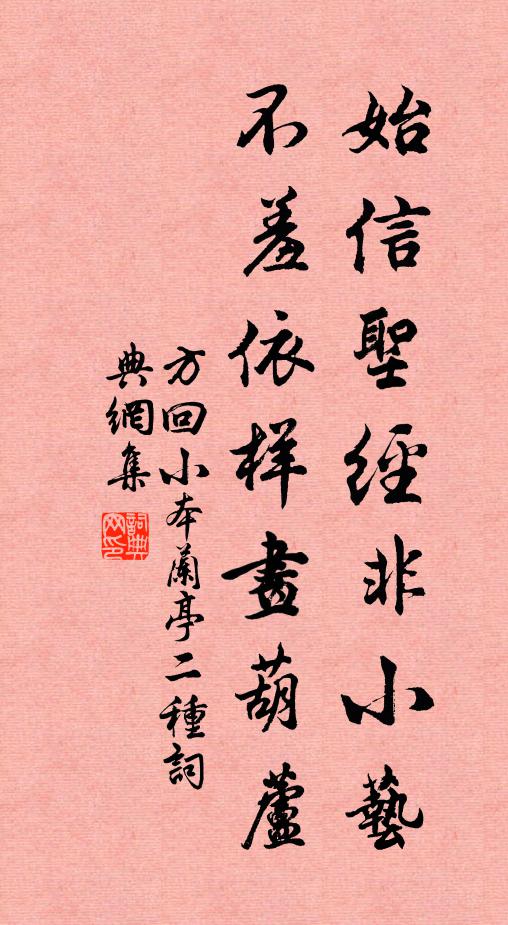 始信聖經非小藝
不羞依样畫葫蘆
方回小本蘭亭二種詞
典網集
詞典網印